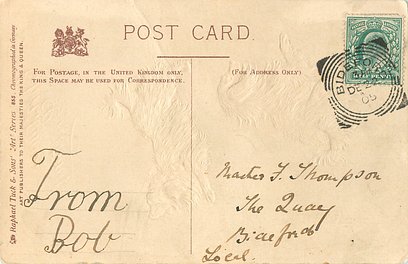 POST CARD.
FOR POSTAGE, IN THE UNITED KINGDOM ONLY,
THIS SPACE MAY BE USED FOR CORRESPONDENCE.
(FOR ADDRESS ONLY)
Raphael Tuck & Sons' "Art" Series 853 Chromographed in Germany
ART PUBLISHERS TO THEIR MAJESTIES THE KING & QUEEN.
BIDEFORD
DE
05
From
Bob
Master F. Thompson
The Quay
Bideford
Local.